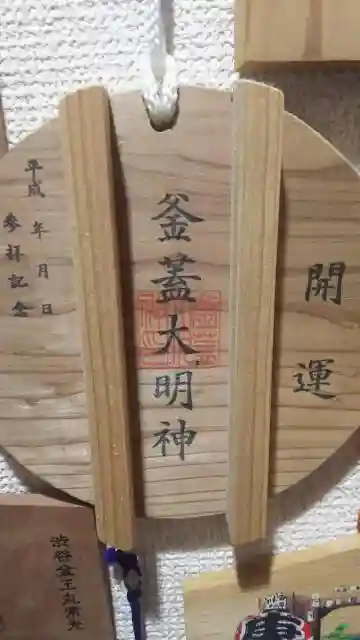 開運
釜蓋大明神
平成 年 月 日
参拝記念
渋谷金王丸常光